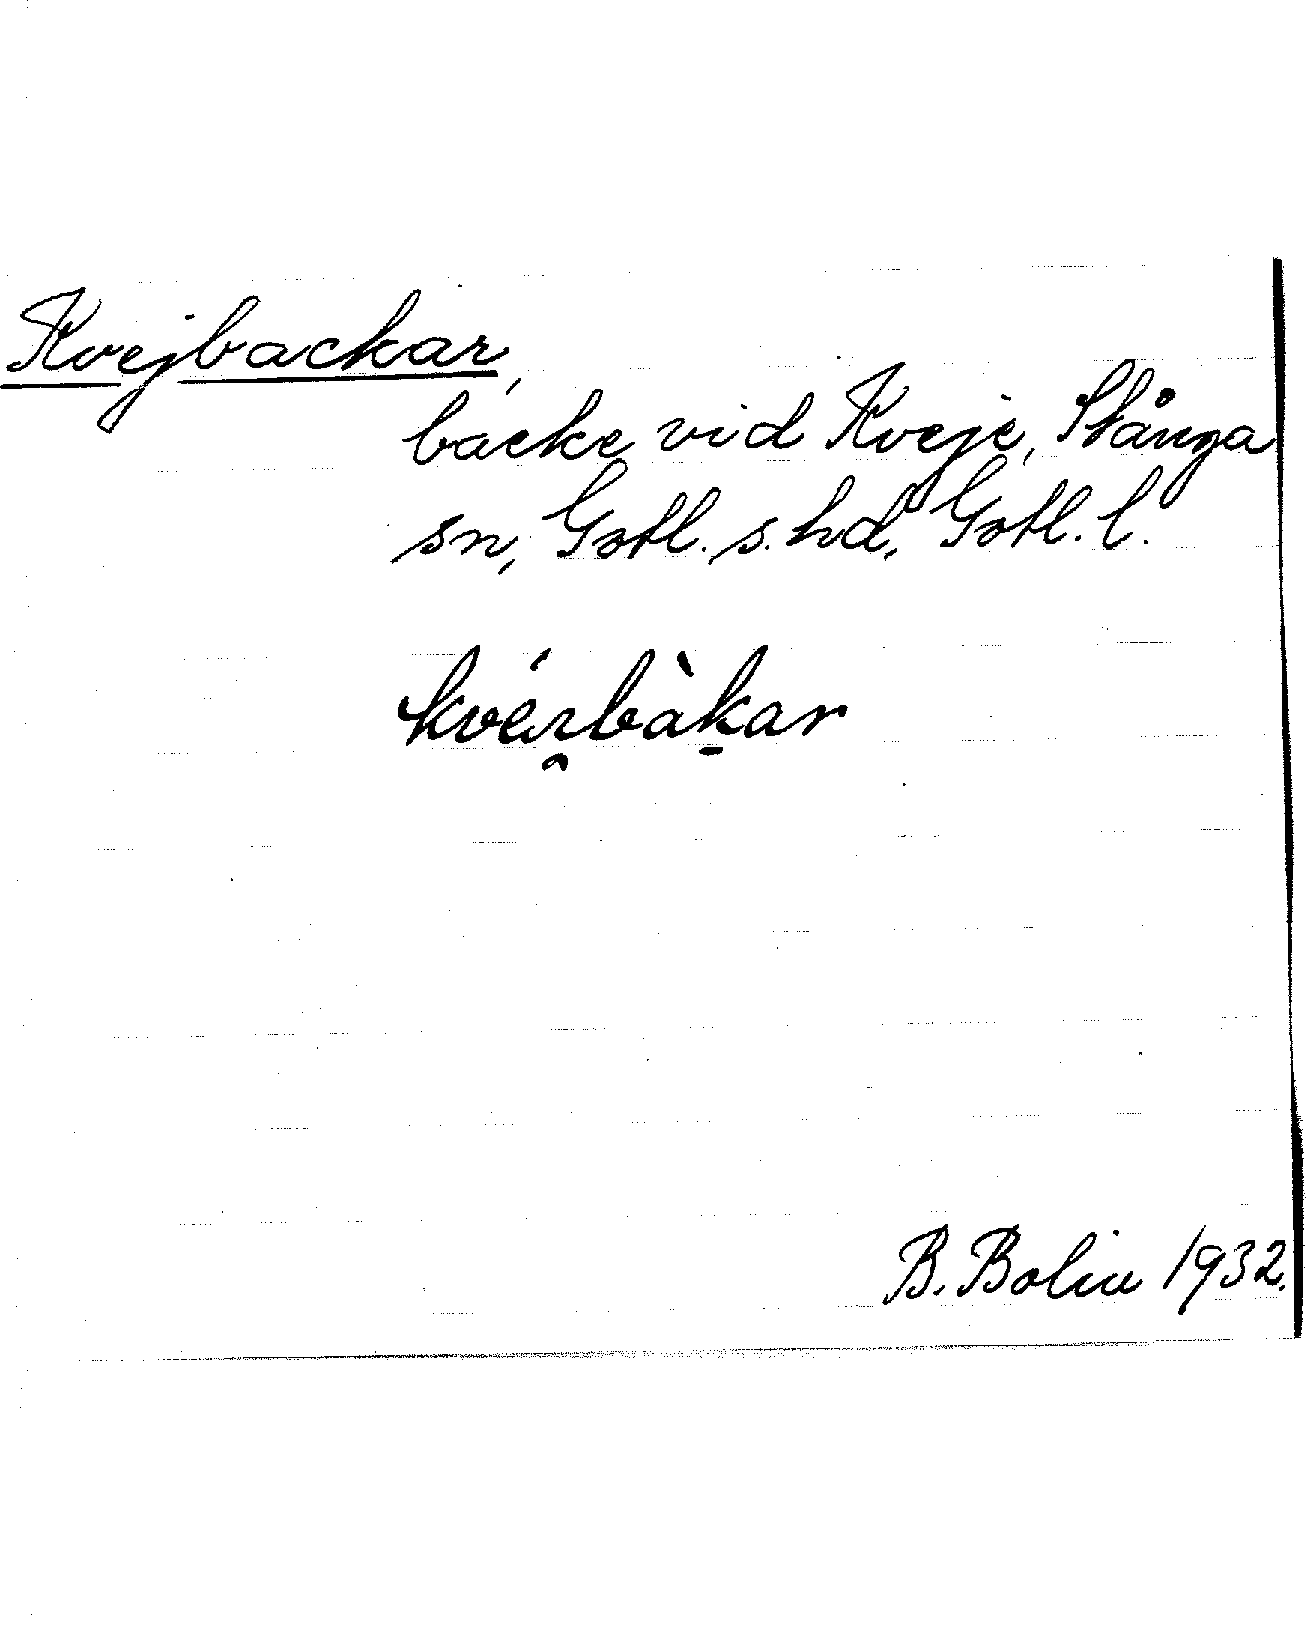 Kvejbackar,
backe vid Kveje, Stånga
sn, Gotl. s. hd, Gotl. l.
kvéı̯bàk̠ar
B. Bolin 1932.